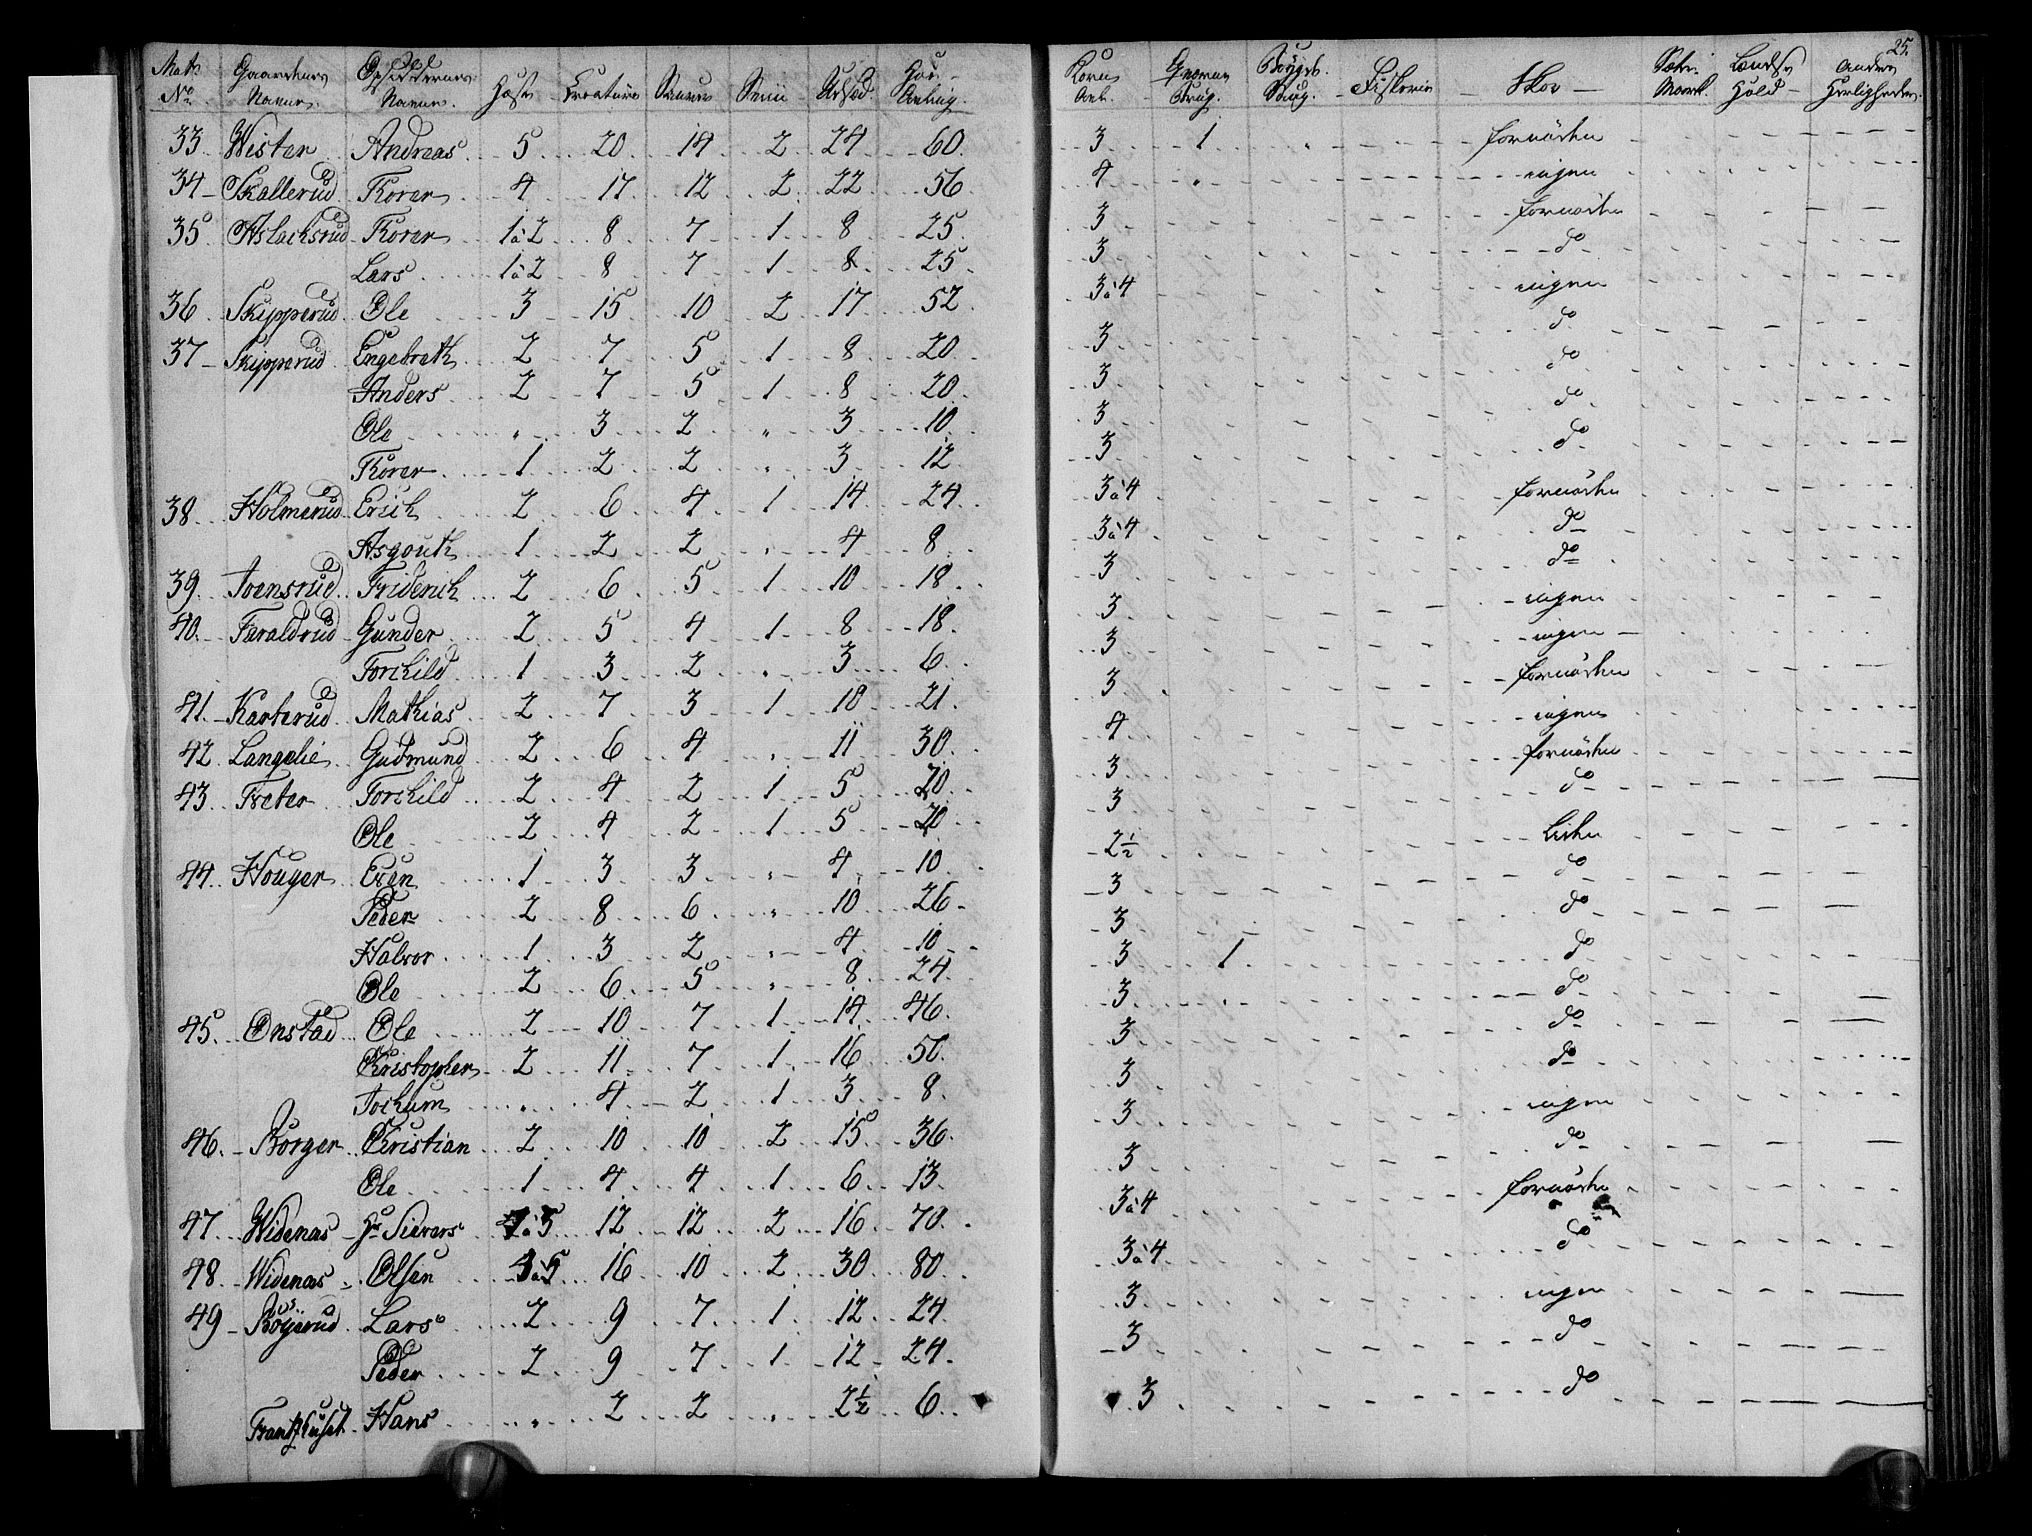 25.
Matr. No. Gaardenes Navne. Opsiddernes Navne. Heste Creature Sauer Sviin Udsæd. Høe Avling. Korn Avl. Qværne Brug. Bøigde Saug. Fiskerie Skov Sæter Mark. Havn Hold Andre Herligheder.
33 Wister Andreas 5 20 14 2 24 60 3 1 fornöden
34 Skallerud Torer 4 17 12 2 22 56 4 " ingen
35 Aslachsrud Torer 1 à 2 8 7 1 8 25 3 fornöden
Lars 1 à 2 8 7 1 8 25 3 do
36 Skipperud Ole 3 15 10 2 17 52 3 à 4 ingen
37 Skipperud Engebreth 2 7 5 1 8 20 3 do
Anders 2 7 5 1 8 20 3 do
Ole " 3 2 " 3 10 3 do
Torer 1 2 2 " 3 12 3 do
38 Holmerud Erich 2 6 4 1 14 24 3 à 4 fornöden
Asgouth 1 2 2 " 4 8 3 à 4 do
39 Joensrud Friderich 2 6 5 1 10 18 3 do
40 Faraldrud Gunder 2 5 4 1 8 18 3 ingen
Torchild 1 3 2 " 3 6 3 ingen
41 Karterud Mathias 2 7 3 1 10 21 3 fornöden
42 Langelie Gudmund 2 6 4 " 11 30 4 ingen
43 Tveter Torchild 2 4 2 1 5 20 3 fornöden
Ole 2 4 2 1 5 20 3 do
44 Houger Even 1 3 3 " 4 10 2 1/2 Liden
Peder 2 8 6 " 10 26 3 do
Halvor 1 3 2 " 4 10 3 do
Ole 2 6 5 " 8 24 3 1 do
45 Onstad Ole 2 10 7 1 14 46 3 do
Christopher 2 11 7 1 16 50 3 do
Jochum " 4 2 1 3 8 3 do
46 Borger Christian 2 10 10 2 15 36 3 ingen
Ole 1 4 4 1 6 13 3 do
47 Widenæs Hr Sievers à 5 12 12 2 16 70 3 à 4 fornöden
48 Widenæs Olsen 16 10 2 30 80 3 à 4 do
49 Röyserud Lars 2 9 7 1 12 24 3 ingen
Peder 2 9 7 1 12 24 3 do
Frantzhuset Hans " 2 2 " 2 1/2 6 3 do